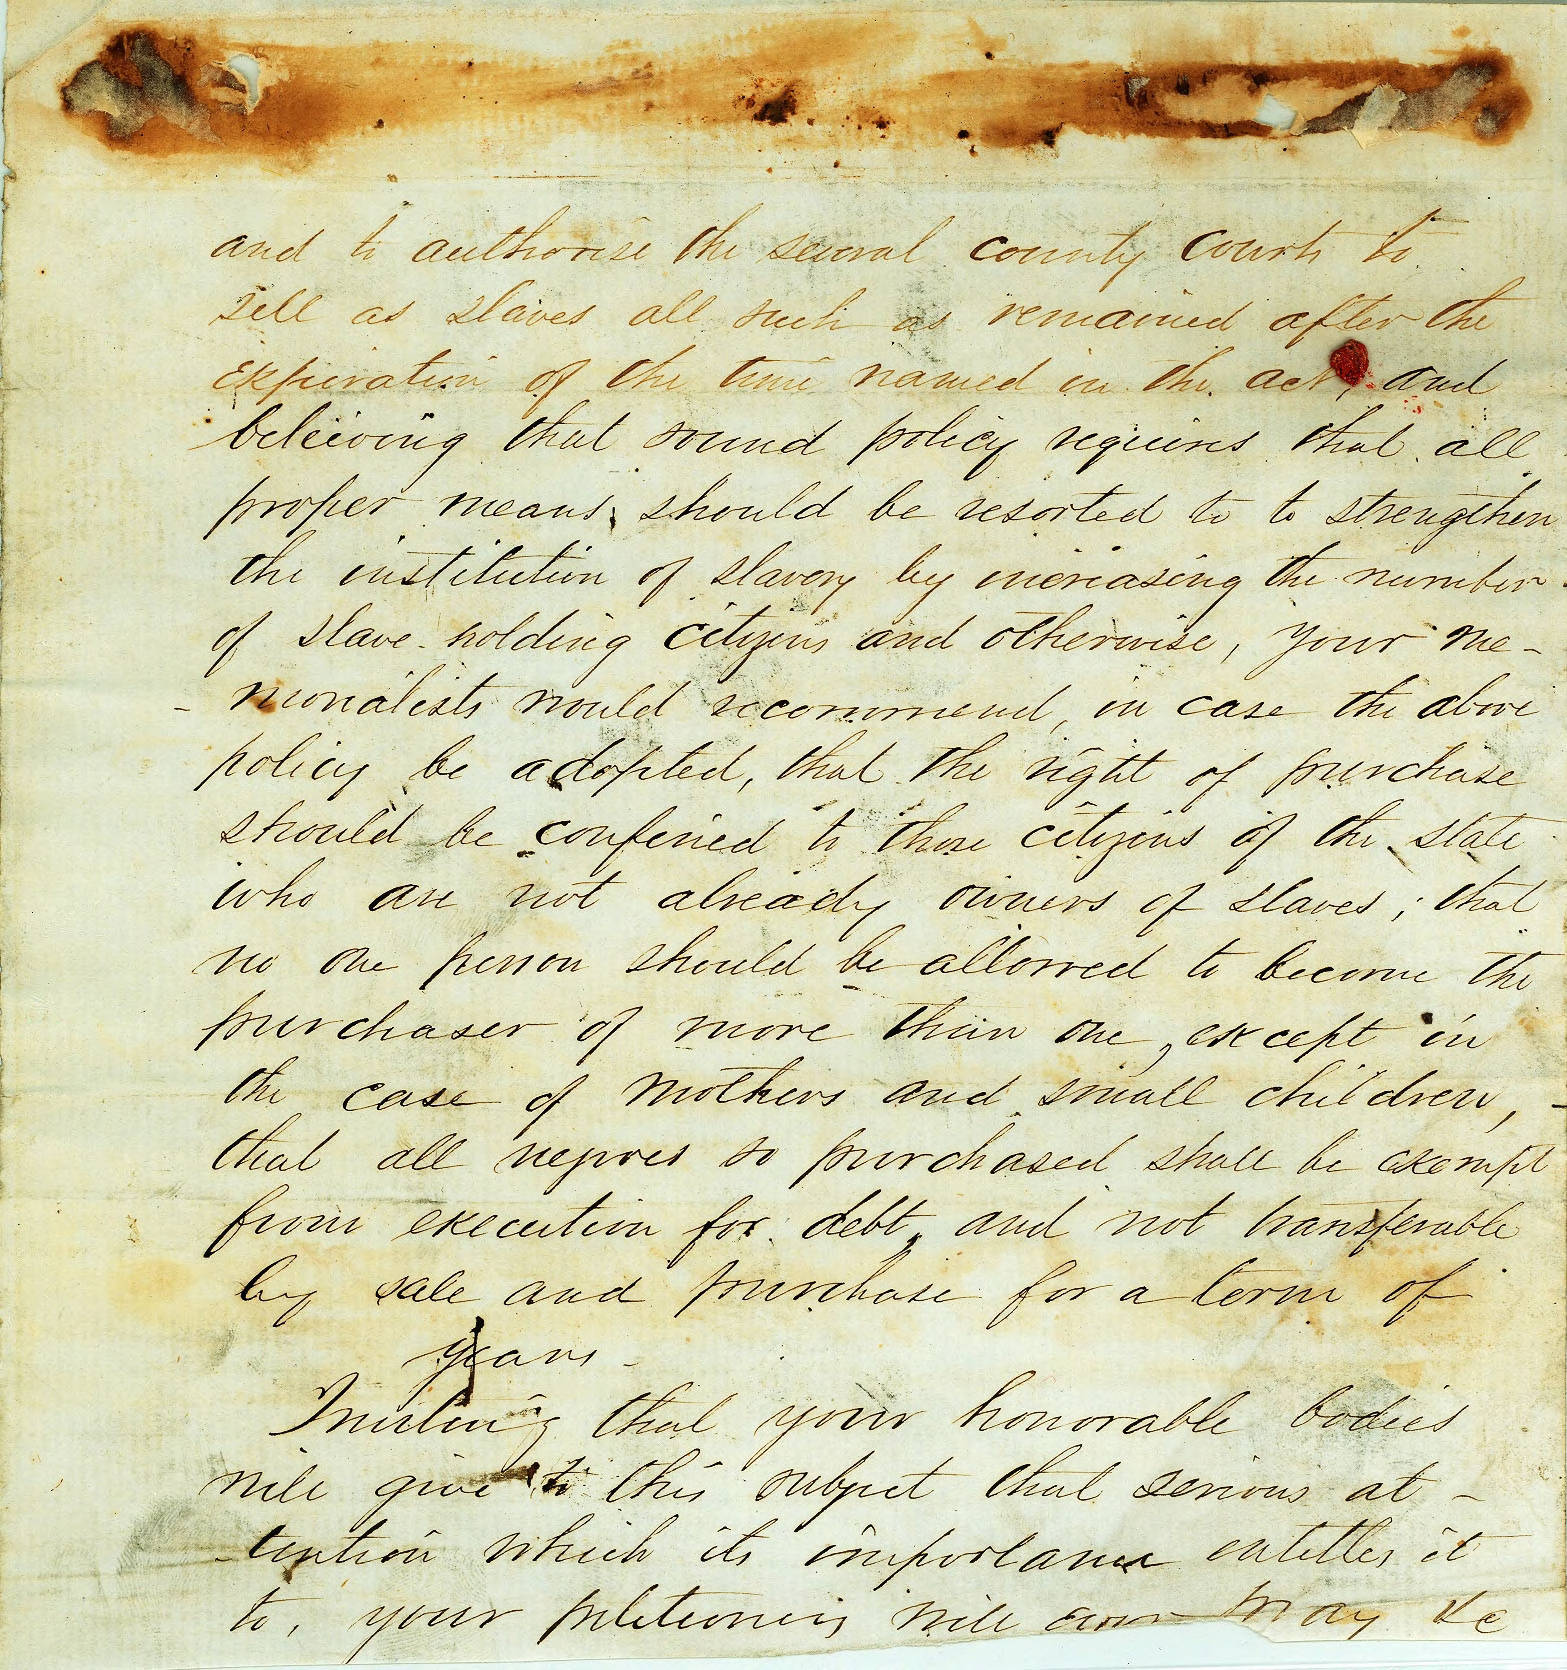 and to authorise the several county courts to
sell as slaves all such as remained after the
expiration of the time named in the act, and
beleiving that sound policy requires that all
proper means should be resorted to to strengthen
the institution of slavery by increasing the number
of slave-holding citizens and otherwise, your me-
-morialists would recommend, in case the above
policy be adopted, that the right of purchase
should be confined to those citizens of the state
who are not already owners of slaves; that
no one person should be allowed to become the
purchaser of more than one, except in
the case of mothers and small children, -
that all negroes so purchased shall be exempt
from execution for debt, and not transferable
by sale and purchase for a term of
years -
Trusting that your honorable bodies
will give to this subject that serious at-
-tention which its importance entitles it
to, your petitioners will ever pray &c